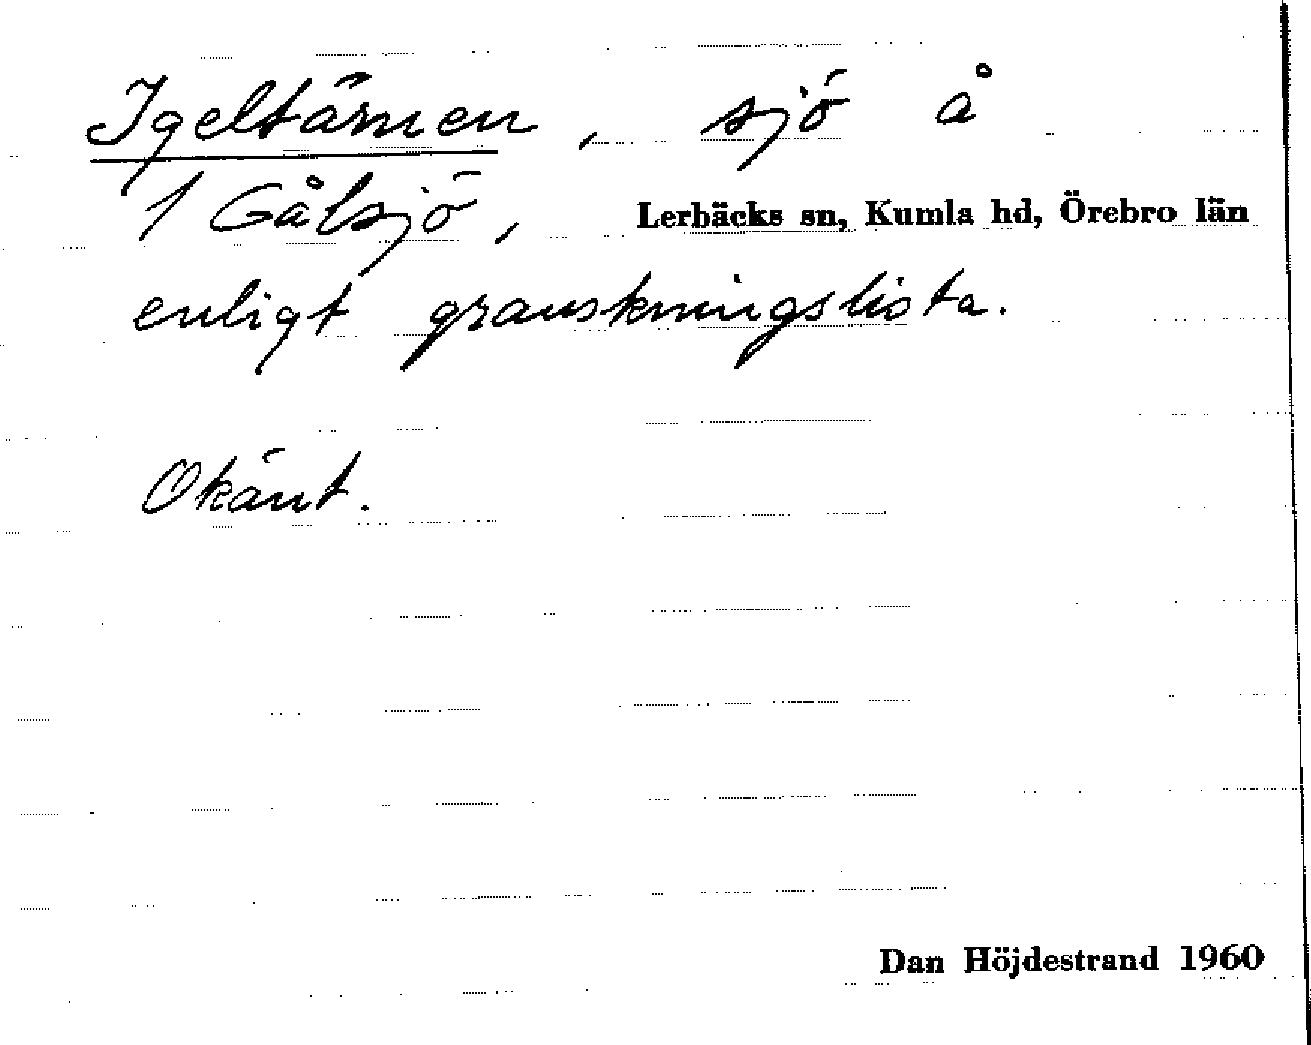 Igeltärnen, sjö å
1 Gålsjö, Lerbäcks sn, Kumla hd, Örebro län
enligt granskningslista.
Okänt.
Dan Höjdestrand 1960